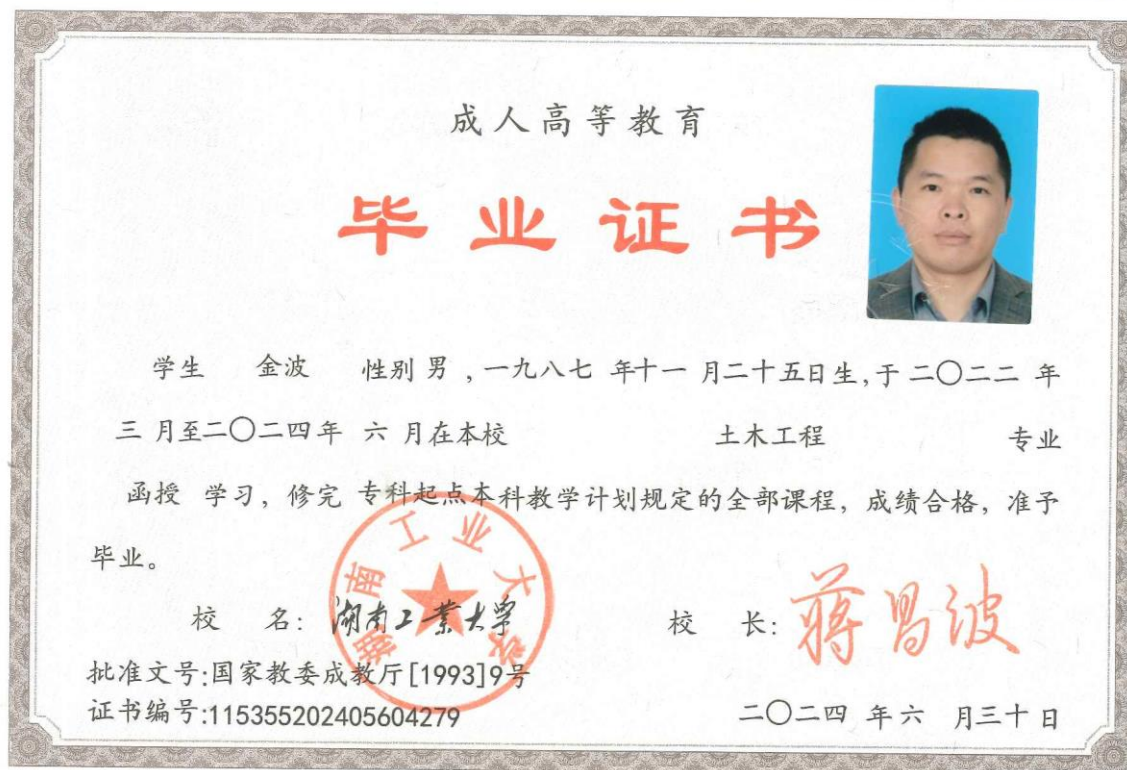 成人高等教育
毕业证书
学生 金波 性别 男 , 一九八七 年十一 月二十五日生, 于 二〇二二 年
三 月至二〇二四年 六 月在本校 土木工程 专业
函授 学习, 修完 专科起点本科教学计划规定的全部课程, 成绩合格, 准予
毕业。
湖南工业大学
校 名: 湖南工业大学 校 长: 蒋昌波
批准文号:国家教委成教厅[1993]9号
证书编号:115355202405604279 二〇二四 年六 月三十日